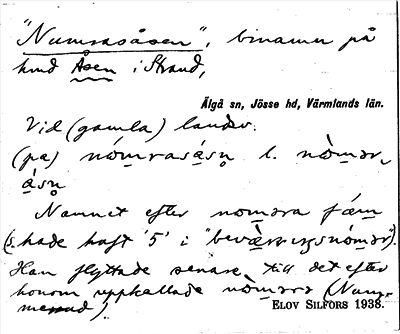 "Numrasåsen", binamn på
hmd Åsen i Strand,
Älgå sn, Jösse hd, Värmlands län.
Vid (gamla) landsv.
(pa) nómrasásn̥ l. nòmər
ásn̥
Namnet efter noməra fám
(s. hade haft '5' i "
Han flyttade senare till det efter
honom uppkallade
ELOV SILFORS 1938.